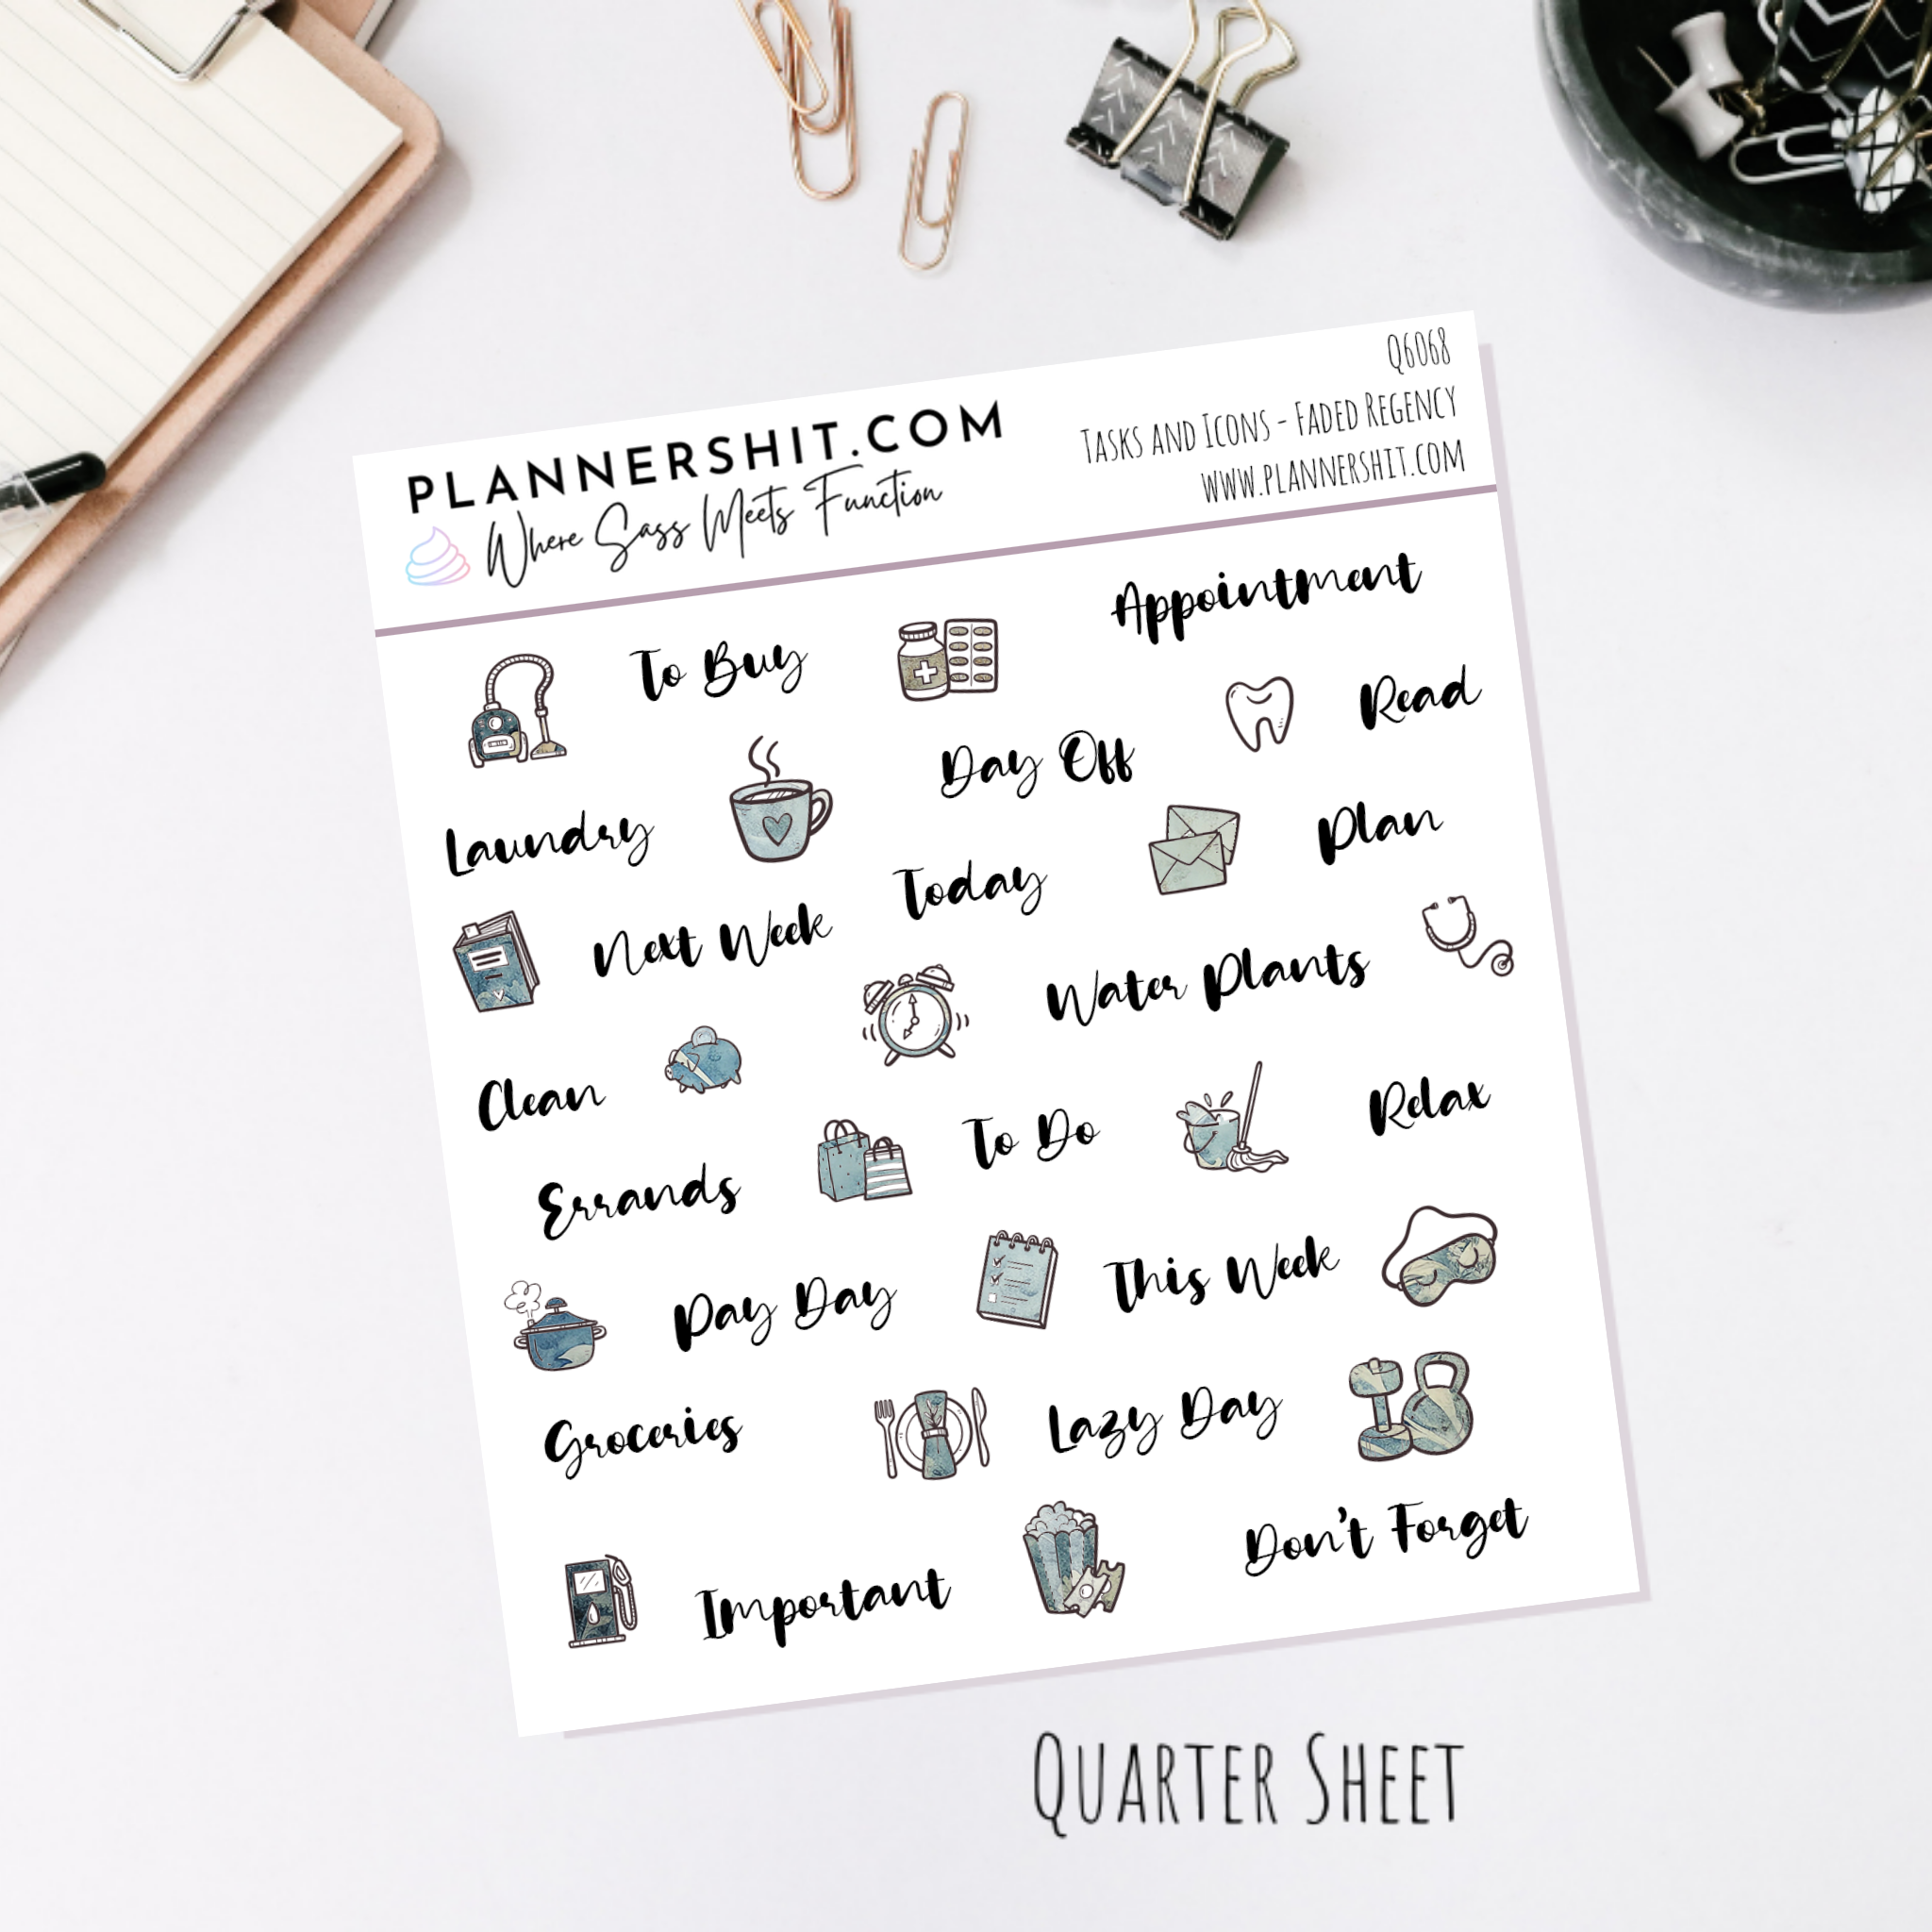 Q6068
PLANNERSHIT.COM
Where Sass Meets Function
Tasks and Icons - Faded Regency
www.plannershit.com
Appointment
To Buy
Read
Day Off
Laundry
Plan
Today
Next Week
Water Plants
Clean
Relax
To Do
Errands
This Week
Pay Day
Lazy Day
Groceries
Don't Forget
Important
Quarter Sheet